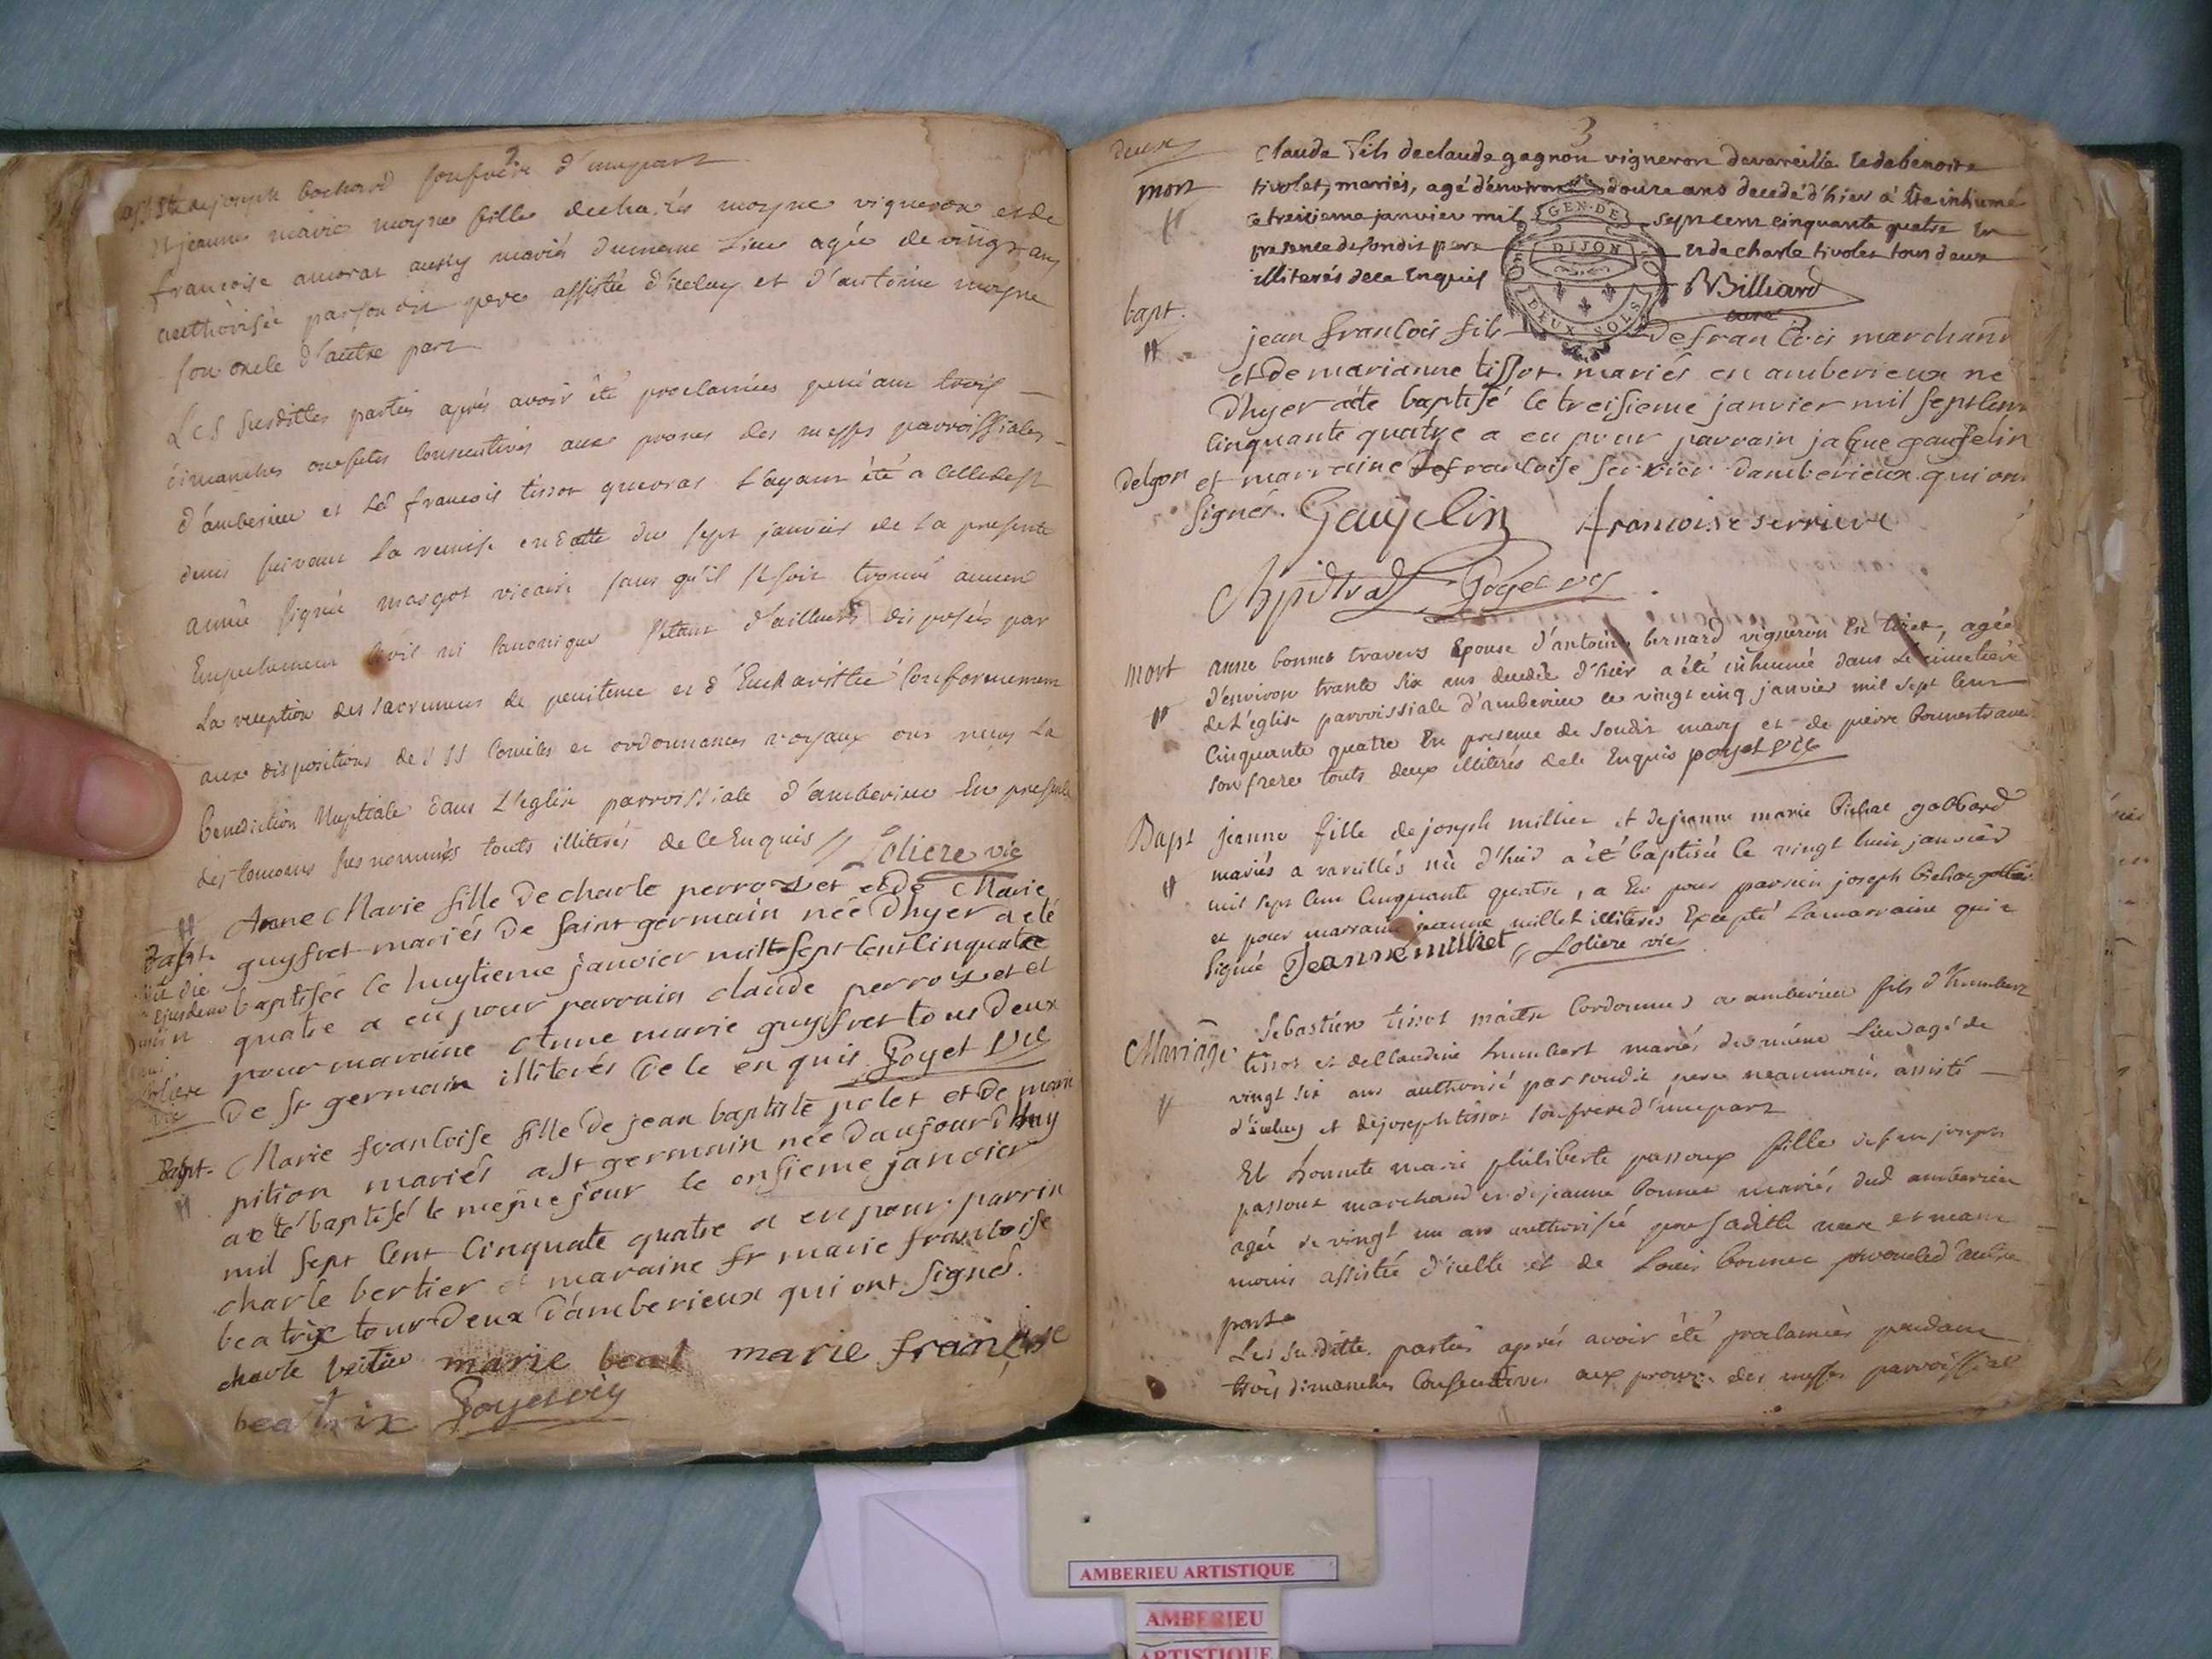 2
assisté de joseph bochard son frere d'une part
et jeanne marie moyne fille de charles moyne vigneron et de
francoise ancoras aussy mariés du meme lieu agée de vingt ans
authorisée par son dit pere assistée d'iceluy et d'antoine moyne
son oncle d'autre part
Les susdittes parties aprés avoir été proclamées pendant trois
dimanches ou festes consecutives aux prones des messes parroissiales
d'amberieu et
denis suivant la remise en datte du sept janvier de la presente
année signée margot vicaire sans qu'il se soit trouvé aucun
Empechement civil ni canonique s'etant d'ailleurs disposés par
La reception des sacremens de penitence et d'Eukaristie conformement
aux dispositions de SSS Conciles et ordonnances royaux ont reçus La
benediction Nuptiale dans L'eglise parroissiale d'amberieu En presence
des temoins susnommés touts illiterés de ce Enquis // Loliere vic
Bapt. Anne Marie fille de charle perrozet et de Marie
guyfret mariés de saint germain née d'hyer a eté
baptisée le huytieme janvier mil sept cent cinquate
quatre a eu pour parrain claude perrozet et
pour maraine Anne marie guyfret tous deux
de st germain illiterés de le enquis. Poyet vic
Loliere
vic
Bapt. Marie francoise fille de jean baptiste polet et de marie
pition mariés a st germain née daujourdhuy
a eté baptisé le mesme jour le onsieme janvier
mil sept cent cinquate quatre a eu pour parrin
charle bertier et maraine fr marie francoise
beatrix tour deux d'amberieux qui ont signés.
charle beitier marie beat marie françoise
beatrix Poyet vic
3
deux
mort Claude fils de claude gagnon vigneron de vareille et de benoite
tivolet, mariés, agé d'environ douze ans decedé d'hier a été inhumé
ce treizieme janvier mil sept cent cinquante quatre en
presence de son dit pere et de charle tivolet tous deux
illiterés de ce Enquis Billiard
curé
GEN·DE
DIJON
DEUX SOLS
bapt. jean francois fils de francois marchand
et de marianne tissot mariés en amberieux né
d'hyer a été baptisé le treisieme janvier mil sept cent
cinquante quatre a eu pour parrain jaque gauselin
et marraine francoise serrier d'amberieux qui ont
signés. Gauselin francoise serriere
Poyet vic
mort anne bonnet travers Epouse d'antoine bernard vigneron En tiret, agée
d'environ trante six ans decedée d'hier a été inhumée dans Le cimetiere
de L'eglise parroissiale d'amberieu ce vingt cinq janvier mil sept cent
Cinquante quatre En presence de soudit mary et de pierre bonnet travers
son frere touts deux illiterés de le Enquis poyet vic
Bapt jeanne fille de joseph millier et de jeanne marie Bichat gobbard
mariés a vareilles née d'hier a été baptisée le vingt huit janvier
mil sept cent cinquante quatre, a Eu pour parrein joseph
et pour marraine jeanne millet illiterés Excepté la marraine qui a
signée Jeanne milliet // Loliere vic
Mariage Sebastien tissot maitre Cordonnier a amberieu fils d'humbert
tissot et de Claudine humbert mariés du méme Lieu agé de
vingt six ans authorisé par soudit pere neanmoins assisté
d'iceluy et de joseph tissot son frere d'une part
Et honnete marie philiberte passoux fille de feu joseph
passout marchand et de jeanne bonnet mariés dud amberieu
agée de vingt un an authorisée par sa ditte mere et neant
moins assistée d'icelle et de Louis bonnet d'autre
part
Les susditte parties aprés avoir été proclamées pendant
trois dimanches Consecutives aux prones des messes parroissial
AMBERIEU ARTISTIQUE
AMBERIEU
ARTISTIQUE